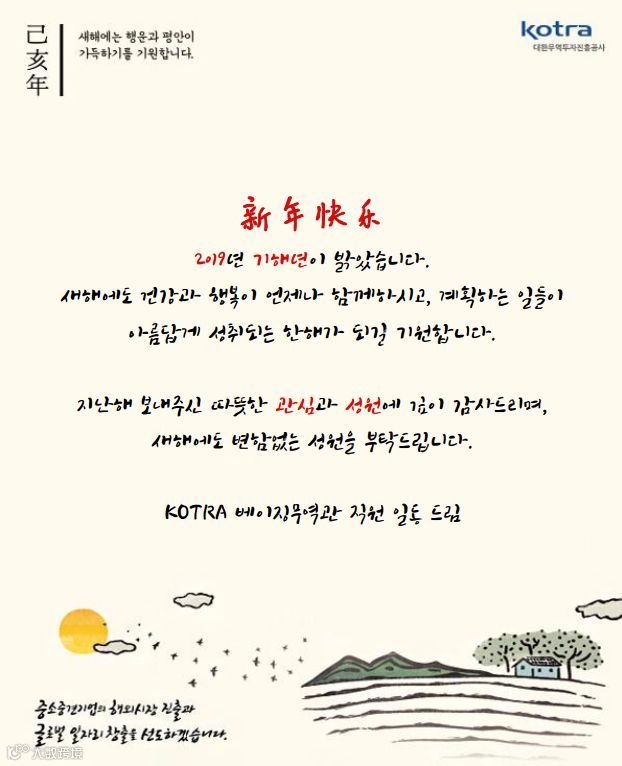 己亥年
새해에는 행운과 평안이
가득하기를 기원합니다.
kotra
대한무역투자진흥공사
新年快乐
2019년 기해년이 밝았습니다.
새해에도 건강과 행복이 언제나 함께하시고, 계획하는 일들이
아름답게 성취되는 한해가 되길 기원합니다.
지난해 보내주신 따뜻한 관심과 성원에 깊이 감사드리며,
새해에도 변함없는 성원을 부탁드립니다.
KOTRA 베이징무역관 직원 일동 드림
중소중견기업의 해외시장 진출과
글로벌 일자리 창출을 선도하겠습니다.
大数跨境